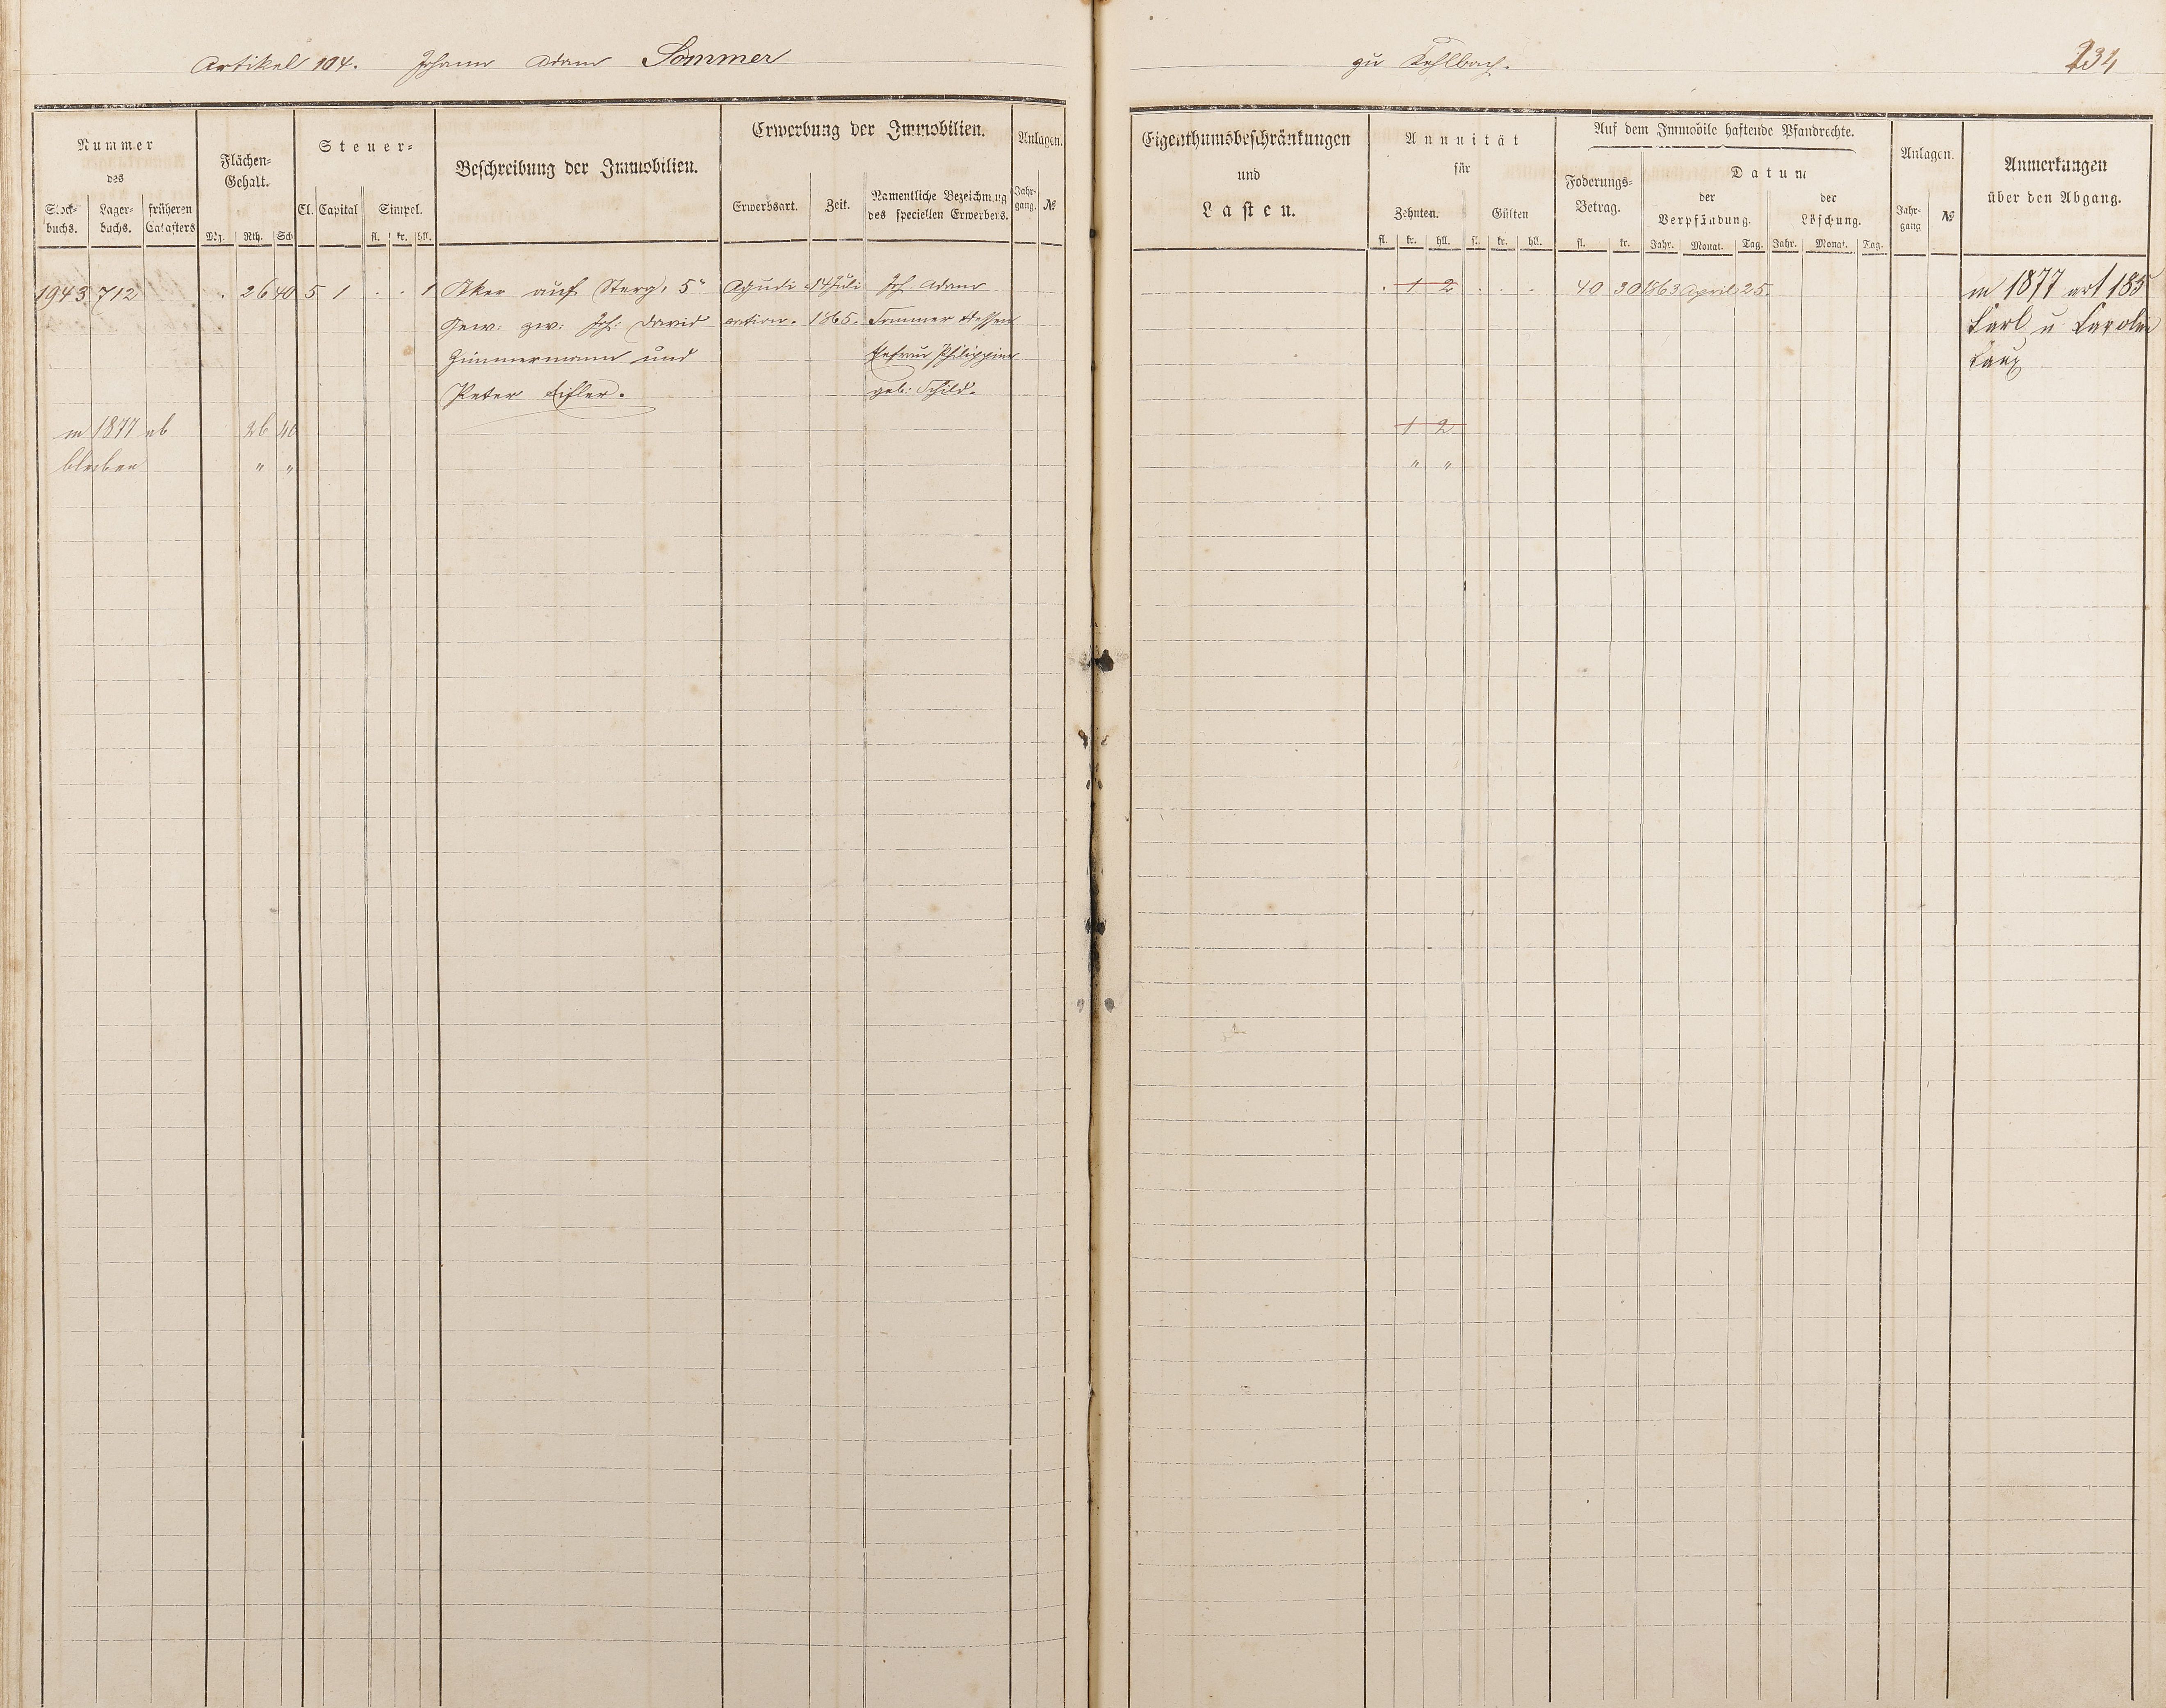 Artikel 104. Johann Adam Sommer
zu Kehlbach.
234
Nummer
des
Stock-
buchs.
Lager-
buchs.
früheren
Catasters
Flächen-
Gehalt.
Mg. Rth. Sch
Steuer-
Cl. Capital Simpel.
fl. kr. hll.
Beschreibung der Immobilien.
Erwerbung der Immobilien.
Erwerbsart. Zeit.
Namentliche Bezeichnung
des speciellen Erwerbers.
Anlagen.
Jahr-
gang. №
Eigenthumsbeschränkungen
und
Lasten.
Annuität
für
Zehnten. Gülten
fl. kr. hll. fl. kr. hll.
Auf dem Immobile haftende Pfandrechte.
Foderungs-
Betrag.
fl. kr.
Datum
der
Verpfändung.
Jahr. Monat. Tag.
der
Löschung.
Jahr. Monat. Tag.
Anlagen.
Jahr-
gang №
Anmerkungen
über den Abgang.
1943 712 . 26 40 5 1 . . 1 Aker auf 5r Adjudi 14 Juli Joh Adam . 1 2 . . . 40 30 1863 April 25. in 1877 art 185
Gew: zw: Joh: David cation. 1865. Sommer dessen Karl u Carolin
Zimmermann und Ehefrau Philippine
Peter Eifler. geb: Schild.
in 1877 ab 26 40 1 2
bleiben " " " "